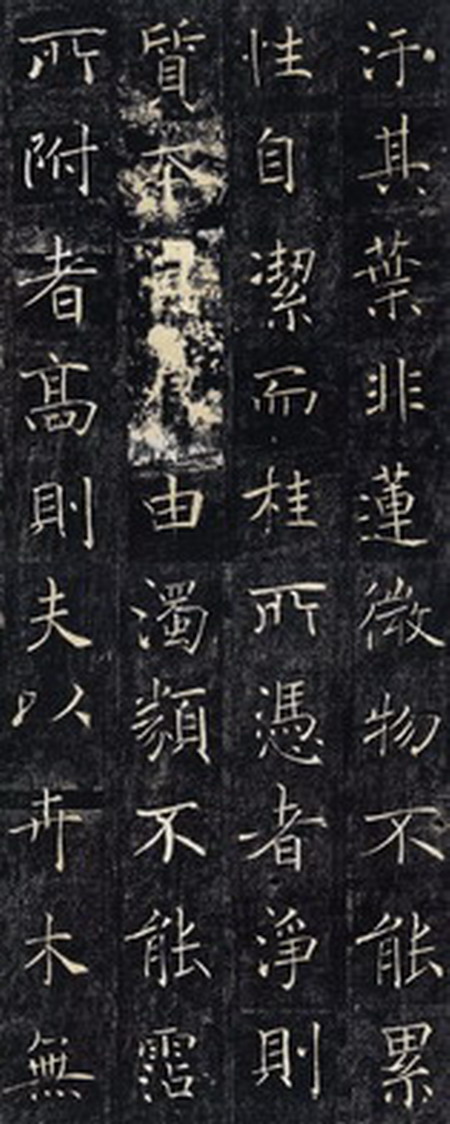 汙其葉非蓮微物不能累
性自潔而桂所憑者淨則
質本由濁類不能霑
所附者髙則夫以卉木無